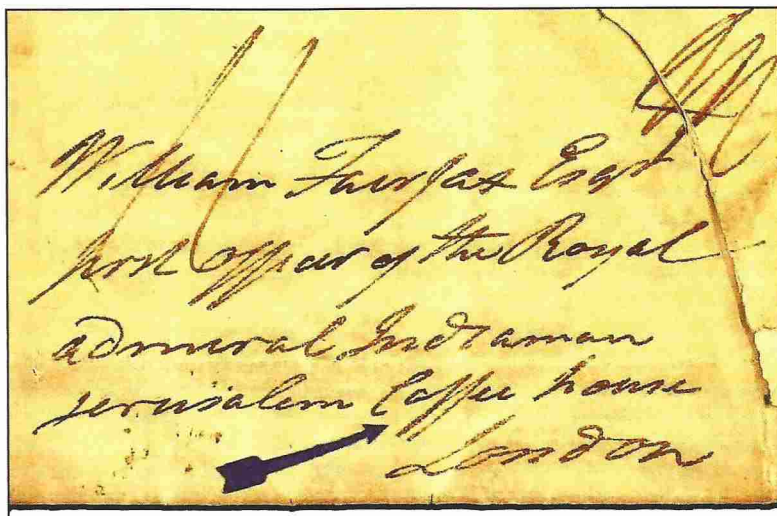 William Fairfax Esqr
first officer of the Royal
admiral Indiaman
Jerusalem Coffee house
London